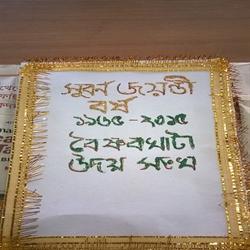 সুবর্ন জয়ন্তী
বর্ষ
১৯৬৫ - ২০১৫
বৈষ্ণবঘাটা
উদয় সংঘ